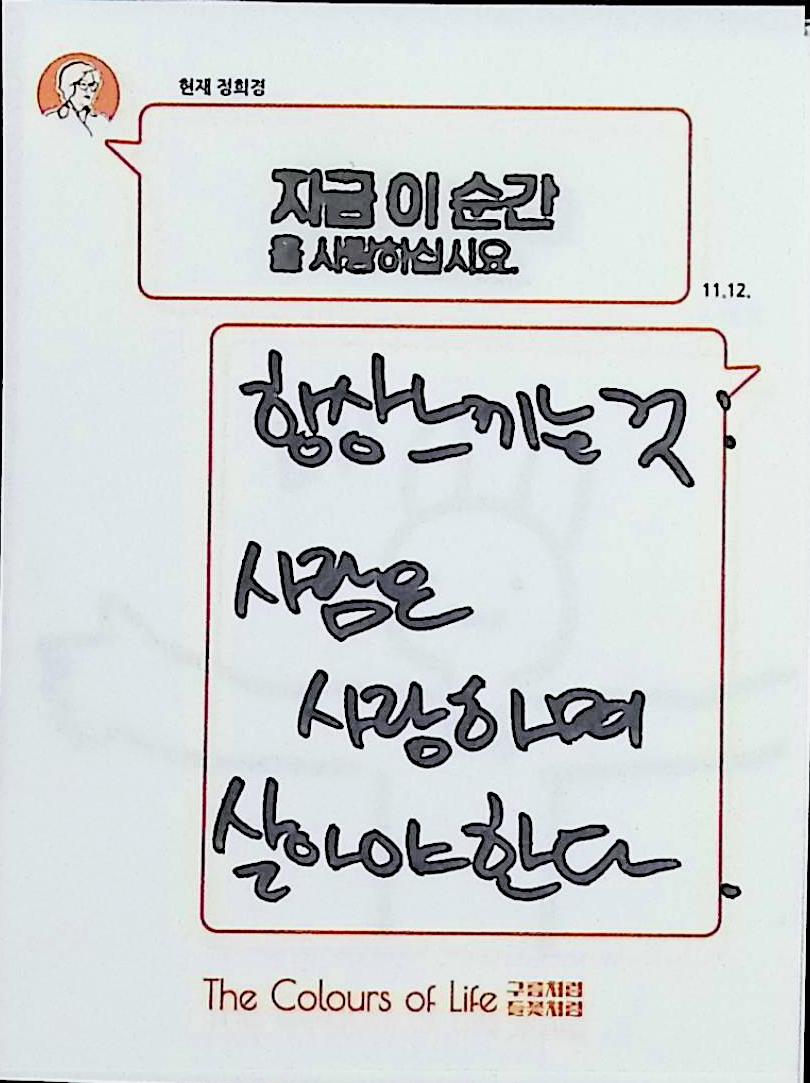 현재 정희경
지금 이 순간
을 사랑하십시요.
11.12.
항상 느끼는 것 :
사람은
사랑하며
살아야 한다.
The Colours of Life 구름처럼
들꽃처럼